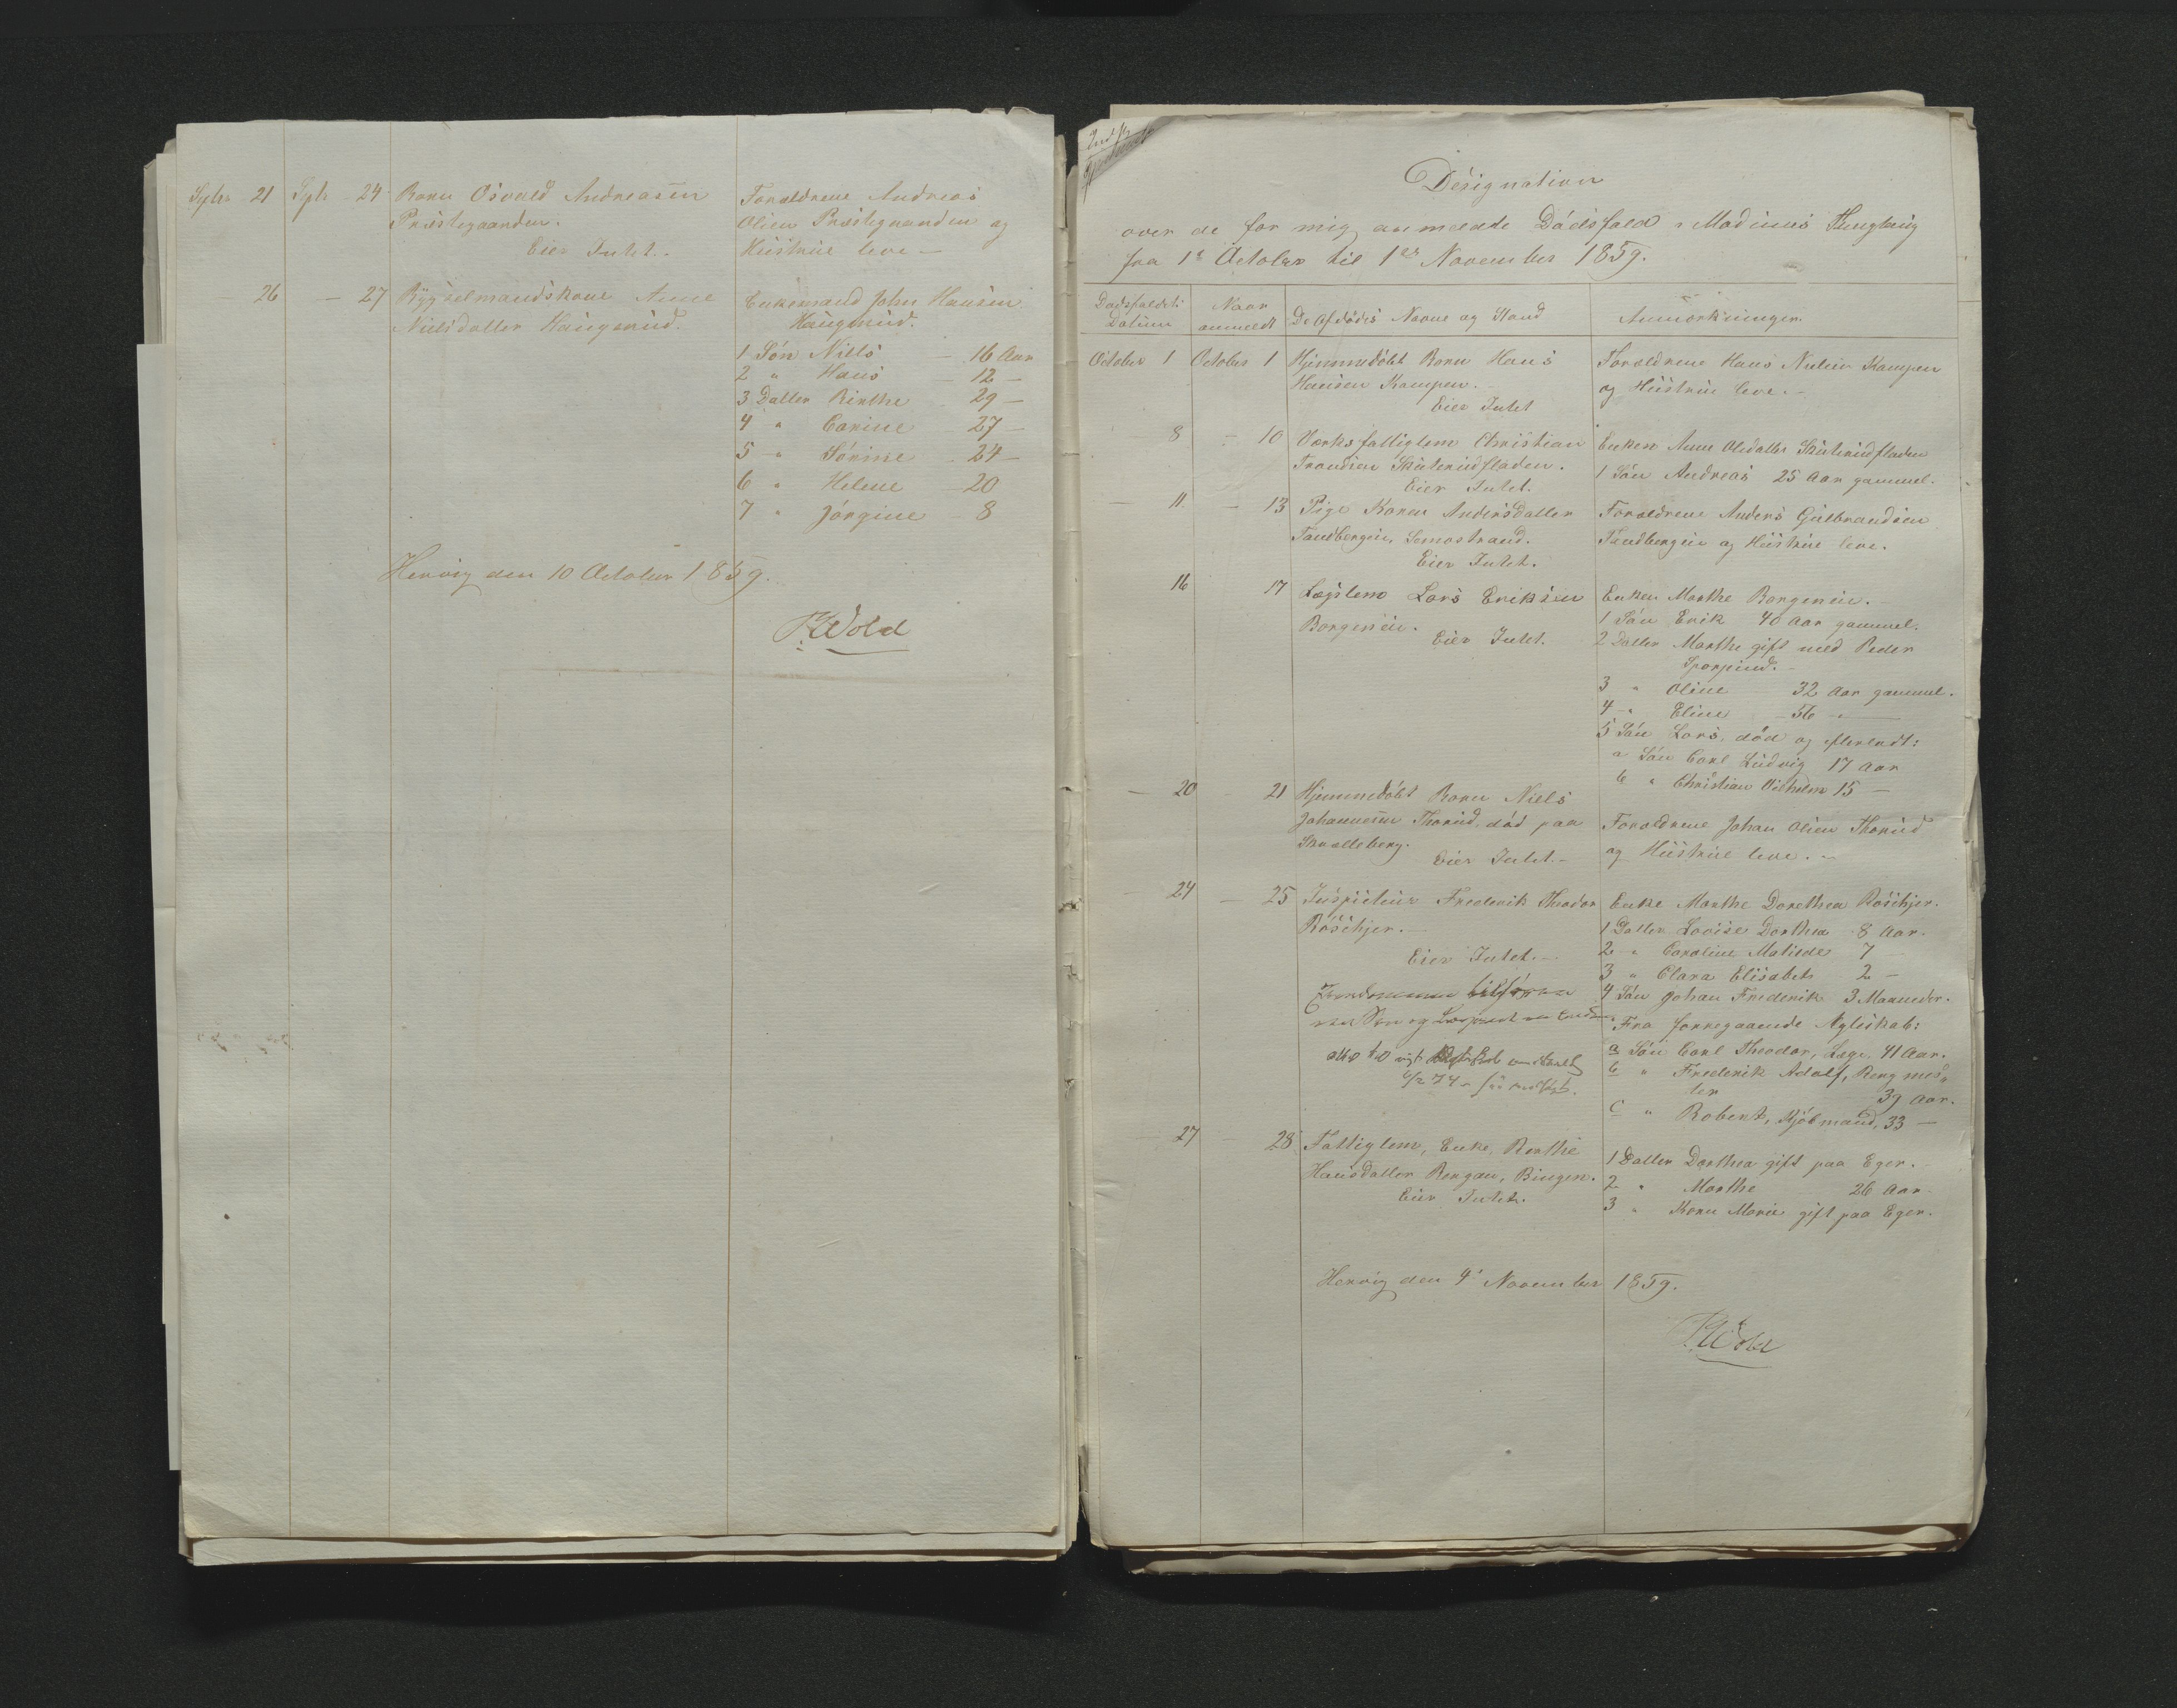 Septr 21 Septr 24 Barn Osvald Andreasen
Præstegaarden.
Eier Intet.
Forældrene Andreas
Olsen Præstegaarden og
Hustrue leve —
26 — 27 Rygselmandskone Anne
Nielsdatter Haugerud.
Enkemand John Hansen
Haugerud.
1 Søn Niels — 16 Aar
2 " Hans — 12 —
3 Datter Birthe — 29 —
4 " Carine — 27 —
5 " Sørine — 24 —
6 " Helene — 20
7 " Jørgine 8
Hervig den 10 October 1859.
P. Wold
Designation
over de for mig anmeldte Dødsfald i Modums Thinglaug
fra 1e October til 1ste November 1859.
Dødsfaldets
Datum
Naar
anmeldt
De Afdødes Navne og Stand
Anmærkninger.
October 1 October 1 Hjemmedøbt Barn Hans
Hansen Kampen.
Eier Intet
Forældrene Hans Nilsen Kampen
og Hustrue leve. —
8 — 10 Værksfattiglem Christian
Trondsen Skuterudfladen.
Eier Intet.
Enken Anne Olsdatter Skuterudfladen
1 Søn Andreas 25 Aar gammel.
— 11 — 13 Pige Karen Andersdatter
Tandbergeie, Semostrand.
Eier Intet.
Forældrene Anders Gulbrandsen
Tandbergeie og Hustrue leve.
16 17 Lægslem Lars Eriksen
Borgereie.
Eier Intet.
Enken Marthe Borgereie.
1 Søn Erik 40 Aar gammel.
2 Datter Marthe gift med Peder
3 " Oline 32 Aar gammel.
4 " Eline 36 —
5 Søn Lars, død og efterladt:
a Søn Carl Ludvig 17 Aar
b " Christian Vilhelm 15 —
— 20 — 21 Hjemmedøbt Barn Niels
Johannesen Thorud, død paa
Skralleberg.
Eier Intet. —
Forældrene Johan Olsen Thorud
og Hustrue leve. —
24 — 25 Inspecteur Frederik Theodor
Röscher.
Eier Intet. —
Enke Marthe Dorethea Röscher.
1 Datter Lovise Dorthea 8 Aar.
2 " Caroline Matilde 7 —
3 " Clara Elisabeth 2 —
4 Søn Johan Frederik 3 Maaneder.
Fra forregaaende Ægteskab:
a Søn Carl Theodor, Læge, 41 Aar.
b " Frederik Adolf, Bergmes„
ter 39 Aar.
c " Robert, Kjøbmand, 33 —
27 — 28 Fattiglem, Enke, Berthe
Hansdatter Bergan, Bingen.
Eier Intet.
1 Datter Dorthea gift paa Eger.
2 " Marthe 26 Aar
3 " Karen Marie gift paa Eger.
Hervig den 4' November 1859.
P. Wold